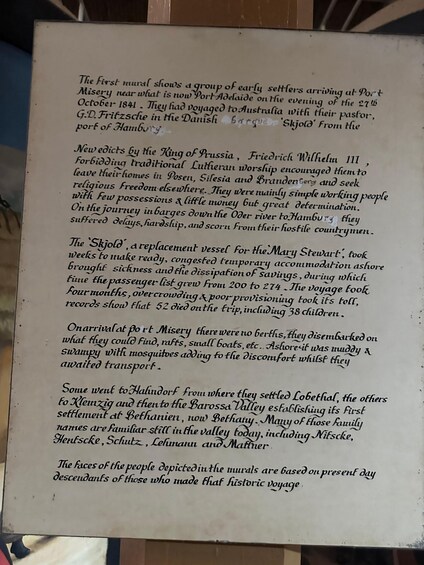 The first mural shows a group of early settlers arriving at Port
Misery near what is now Port Adelaide on the evening of the 27th
October 1841. They had voyaged to Australia with their pastor,
G.D. Fritzsche in the Danish 'Skjold' from the
port of Hamburg.
New edicts by the King of Prussia, Friedrich Wilhelm III,
forbidding traditional Lutheran worship encouraged them to
leave their homes in Posen, Silesia and Brandenberg and seek
religious freedom elsewhere. They were mainly simple working people
with few possessions & little money but great determination.
On the journey in barges down the Oder river to Hamburg they
suffered delays, hardship, and scorn from their hostile countrymen.
The 'Skjold', a replacement vessel for the 'Mary Stewart', took
weeks to make ready, congested temporary accommodation ashore
brought sickness and the dissipation of savings, during which
time the passenger list grew from 200 to 274. The voyage took
four months, overcrowding & poor provisioning took its toll,
records show that 52 died on the trip, including 38 children.
On arrival at Port Misery there were no berths, they disembarked on
what they could find, rafts, small boats, etc.. Ashore it was muddy &
swampy with mosquitoes adding to the discomfort whilst they
awaited transport.
Some went to Hahndorf from where they settled Lobethal, the others
to Klemzig and then to the Barossa Valley establishing its first
settlement at Bethanien, now Bethany. Many of those family
names are familiar still in the valley today, including Nitscke,
Hentscke, Schutz, Lohmann and Mattner
The faces of the people depicted in the murals are based on present day
descendants of those who made that historic voyage